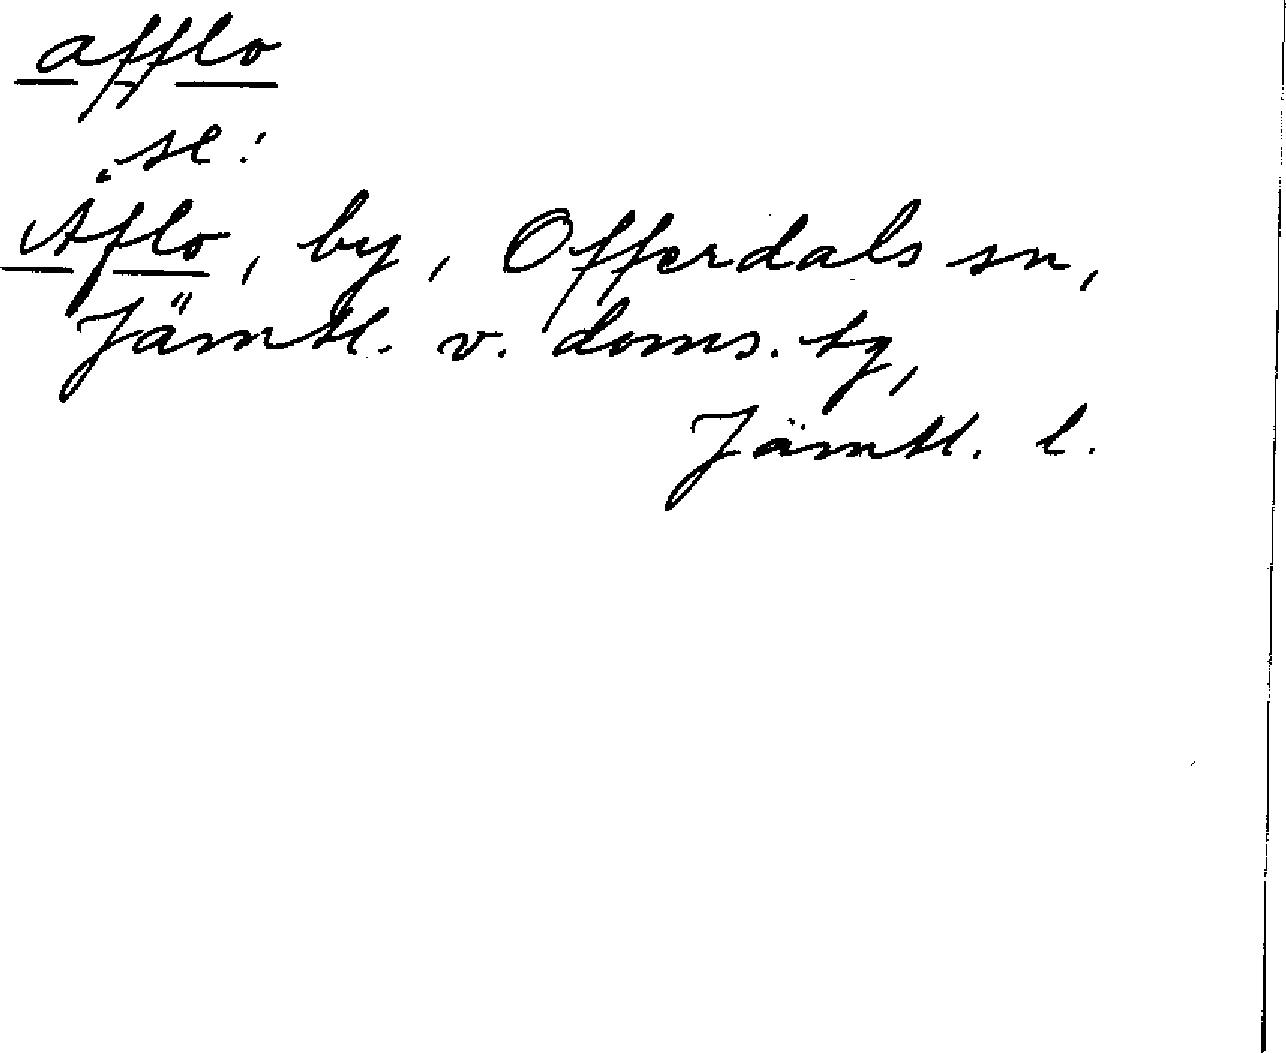 afflo
se:
Aflo, by, Offerdals sn,
Jämtl. v. doms. tg,
Jämtl. l.